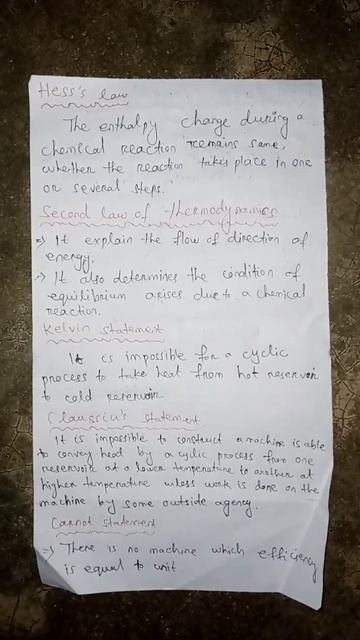 Hess's law
The enthalpy change during a
chemical reaction remains same,
whether the reaction takes place in one
or several steps.
Second law of thermodynamics
⇒ It explain the flow of direction of
energy.
⇒ It also determines the condition of
equilibrium arises due to a chemical
reaction.
Kelvin statement
It is impossible for a cyclic
process to take heat from hot reservoir
to cold reservoir
Claussiu's statement
It is impossible to construct a machine is able
to convey head by a cyclic process from one
reservoir at a lower temperature to another at
higher temperature unless work is done on the
machine by some outside agency.
Carnot statement
⇒ There is no machine which efficiency
is equal to unit.